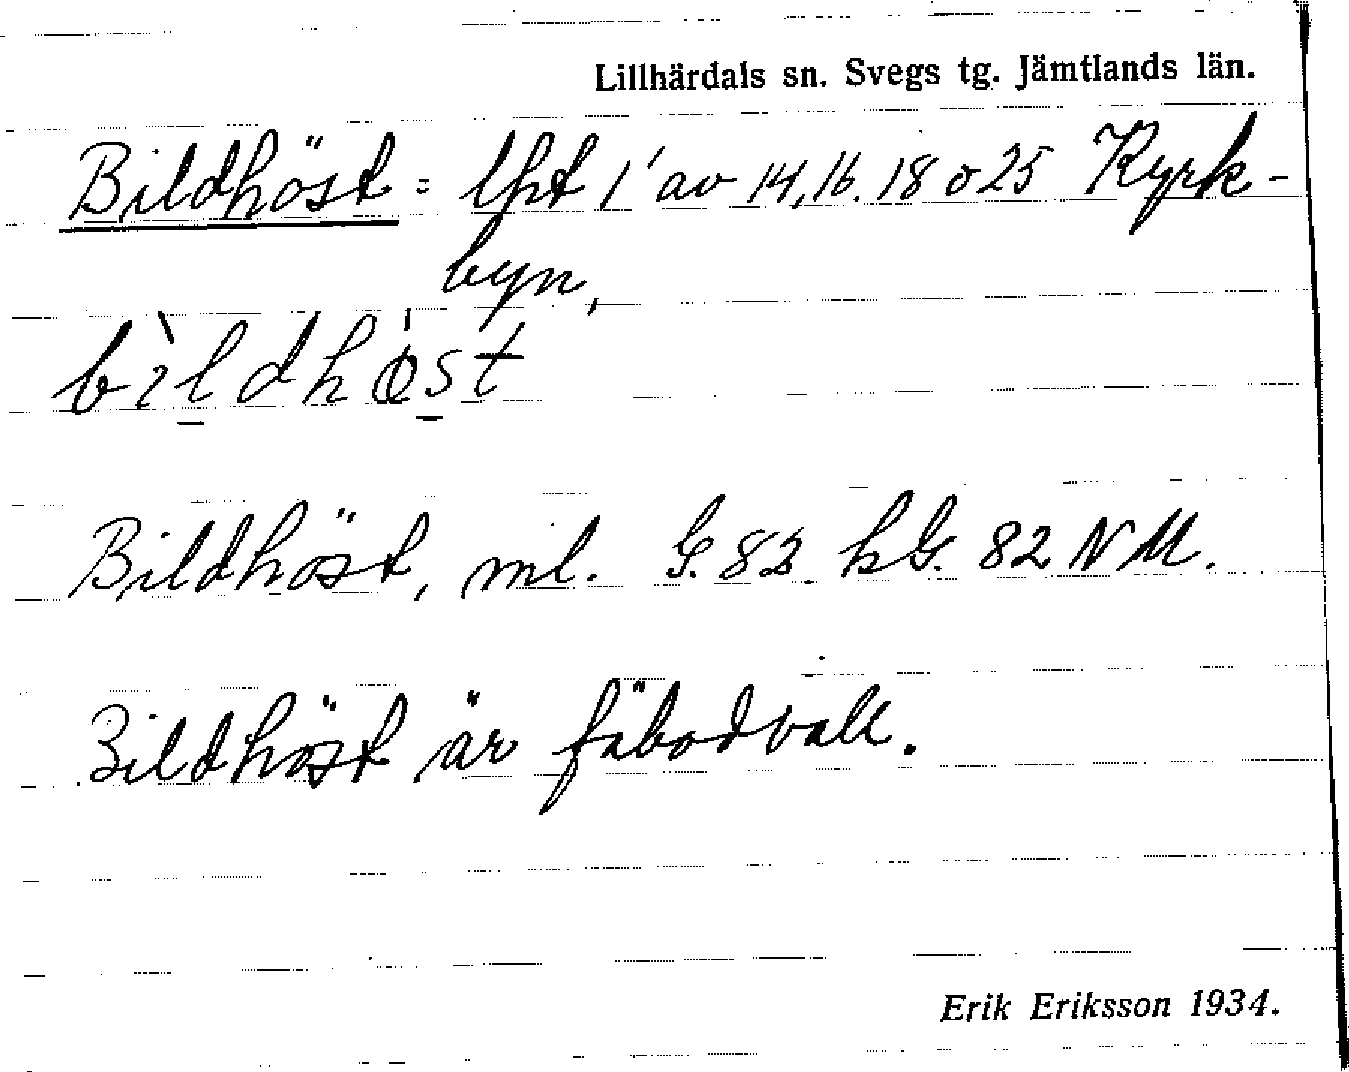 Lillhärdals sn. Svegs tg. Jämtlands län.
Bildhöst = lht 1' av 14, 16. 18 o 25 Kyrk-
byn,
bìldhøst
Bildhöst, ml. G. 82 hG. 82 NM.
Bildhöst är fäbodvall.
Erik Eriksson 1934.